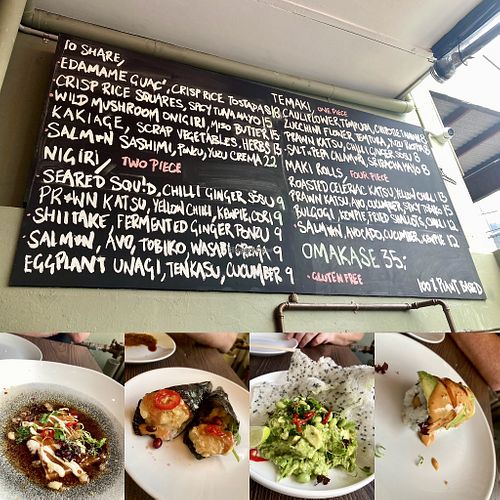 TO SHARE,
EDAMAME GUAC', CRISP RICE TOSTADAS 18
CRISP RICE SQUARES, SPICY TUNA MAYO 15
WILD MUSHROOM ONIGIRI, MISO BUTTER 15
KAKIAGE, SCRAP VEGETABLES. HERBS 13
SALM*N SASHIMI, PONZU, YUZU CREMA 22
NIGIRI/ TWO PIECE
SEARED SQU!D, CHILLI GINGER, SOSU 9
PR*WN KATSU, YELLOW CHILLI, KEWPIE, CORI 9
SHIITAKE, FERMENTED GINGER PONZU 9
SALM*N, AVO, TOBIKO WASABI CREMA 9
EGGPLANT UNAGI, TENKASU, CUCUMBER 9
TEMAKI, ONE PIECE
CAULIFLOWER TEMPURA, CHIPOTLE 8
ZUCCHINI FLOWER TEMPURA, YUZU 8
PRAWN KATSU, CHILLI GINGER, SOSU 8
SALT & PEPA CALAMARI, SRIRACHA MAYO 8
MAKI ROLLS, FOUR PIECE
ROASTED CELERIAC KATSU, YELLOW CHILLI 13
PRAWN KATSU, AVO, CUCUMBER, SPICY 15
BULGOGI, KEWPIE, FRIED SHALLOTS, CHILLI 12
SALM*N, AVOCADO, CUCUMBER, KEWPIE 12
OMAKASE 35;
- GLUTEN FREE
100% PLANT BASED